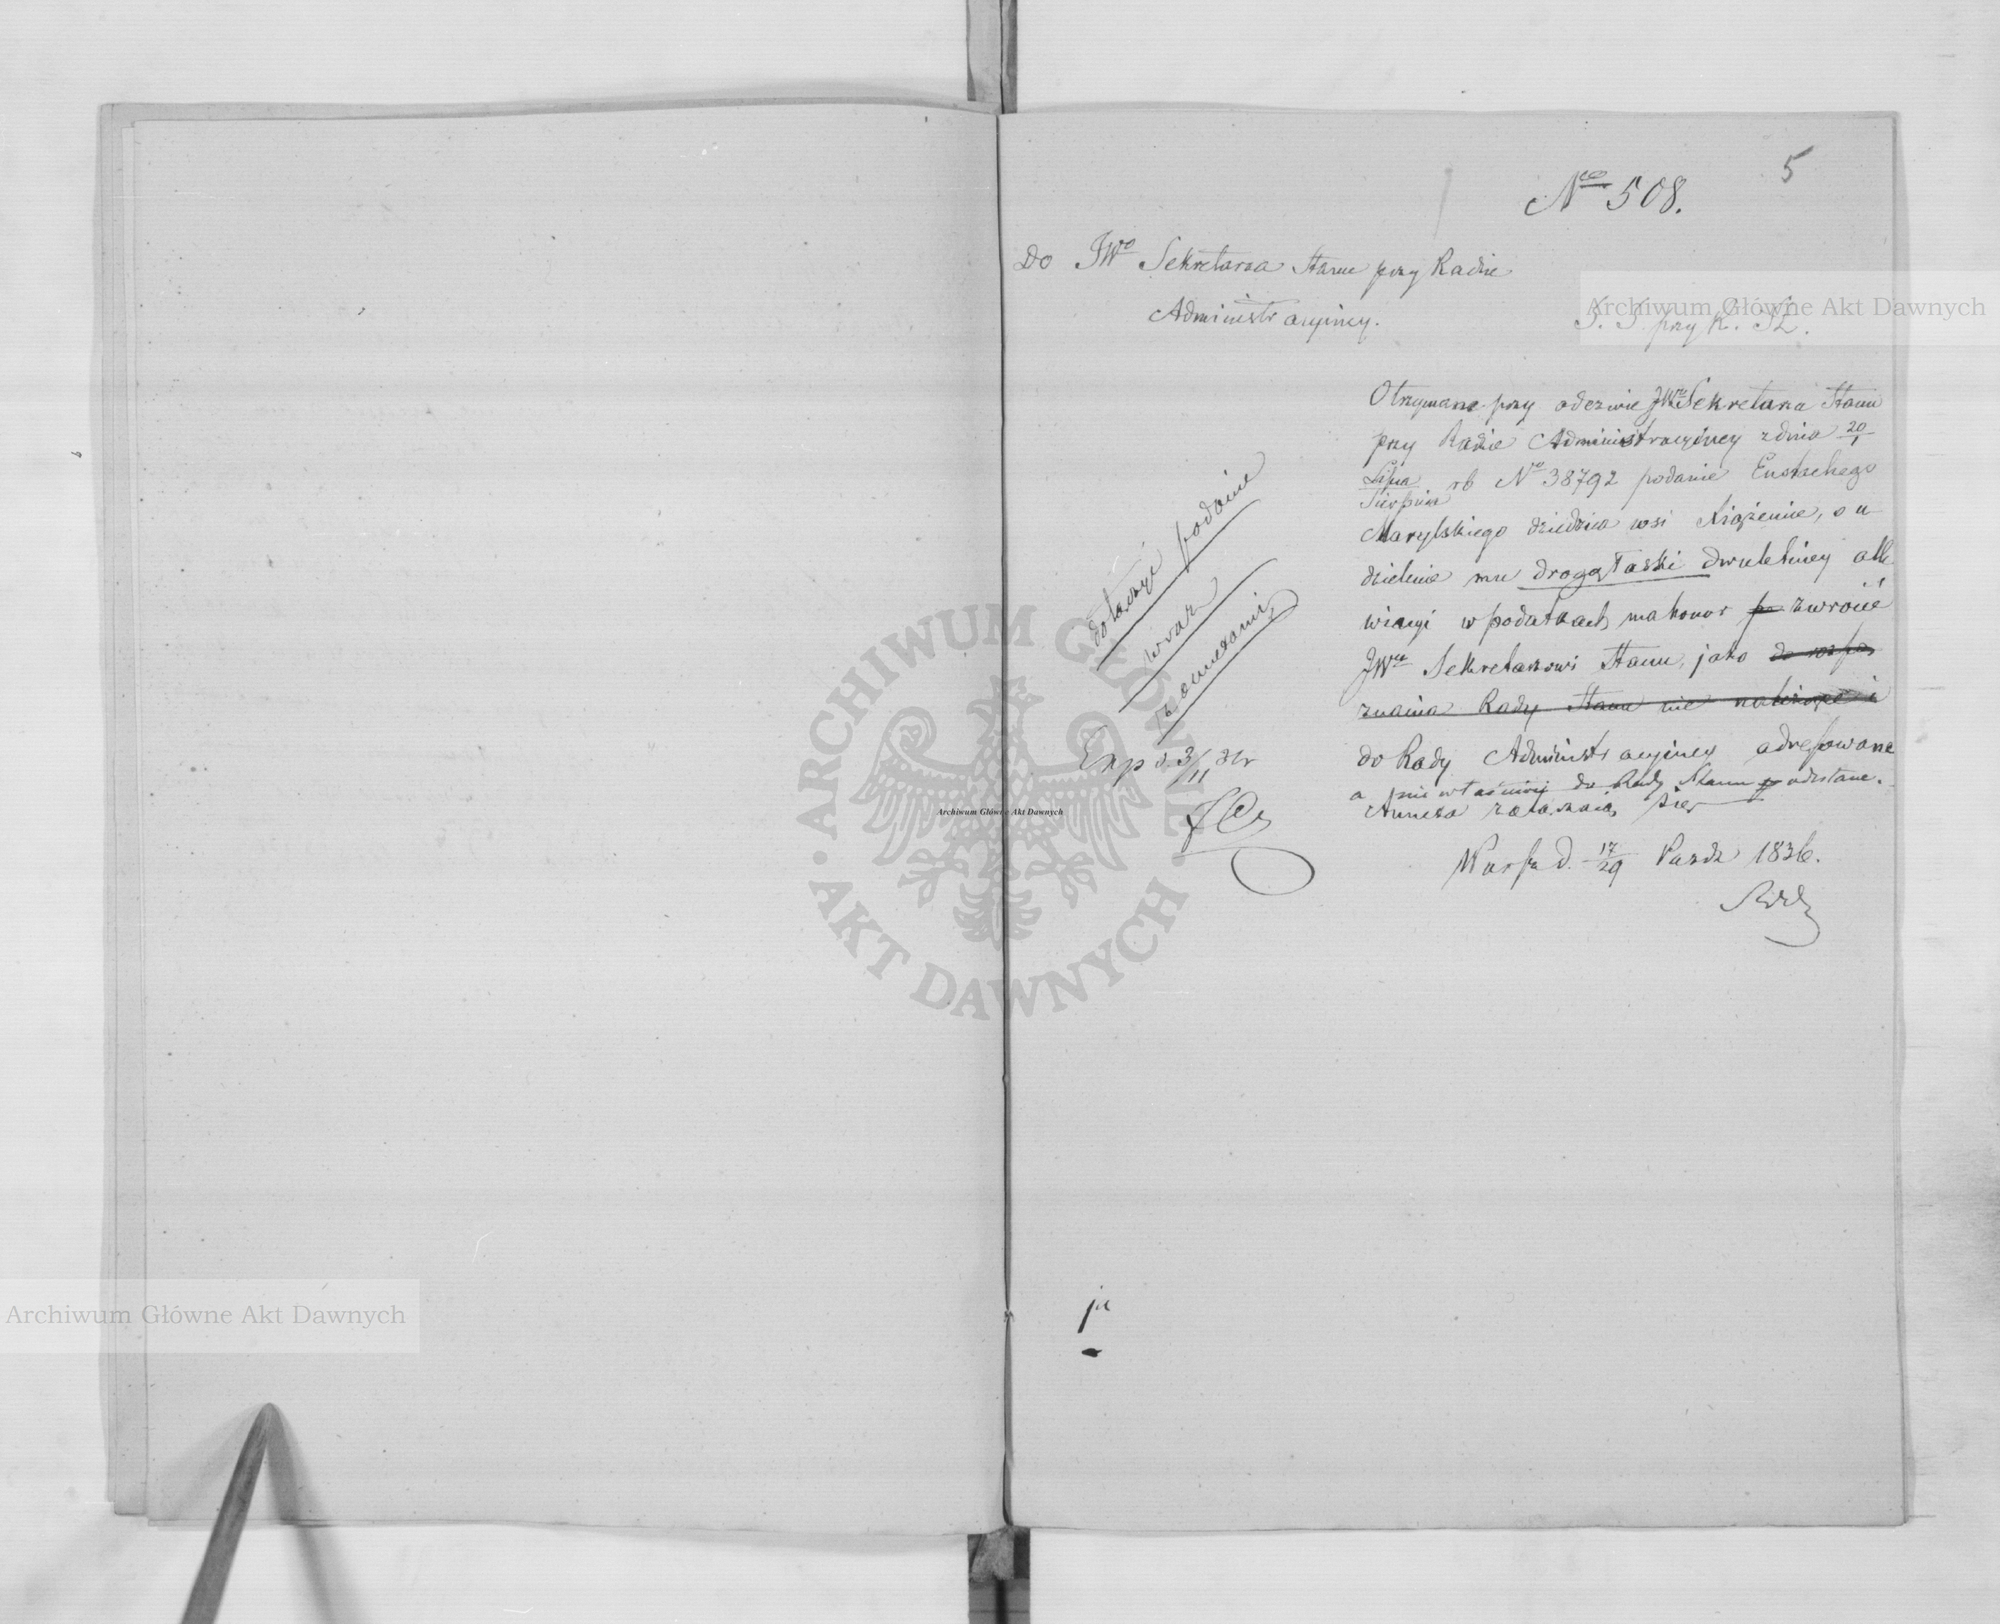 5
Nro 508.
Do JWo Sekretarza Stanu przy Radzie
Administracyiney.
S. S. przy R. St.
Otrzymane przy odezwie JWgo Sekretarza Stanu
przy Radzie Administracyiney z dnia 20/1
Lipca
Sierpnia rb No 38792 podanie Eustachego
Marylskiego dziedzica wsi Xiążenie, o u
dzielenie mu drogą łaski dwuletniey all
wiacyi w podatkach, ma honor zwrócić
JWmu Sekretarzowi Stanu, jako do rozpo
znania Rady Stanu nie należące i
do Rady Administracyiney adresowane
a nie właściwiey do Rady Stanu odesłane.
Annexa załączaią się
Warsz d. 17/29 Paźdz 1836.
dołączyć podanie
wraz
z annexami
Exp d. 3/11 36r
ja
Archiwum Główne Akt Dawnych
Archiwum Główne Akt Dawnych
Archiwum Główne Akt Dawnych
ARCHIWUM GŁÓWNE · AKT DAWNYCH ·